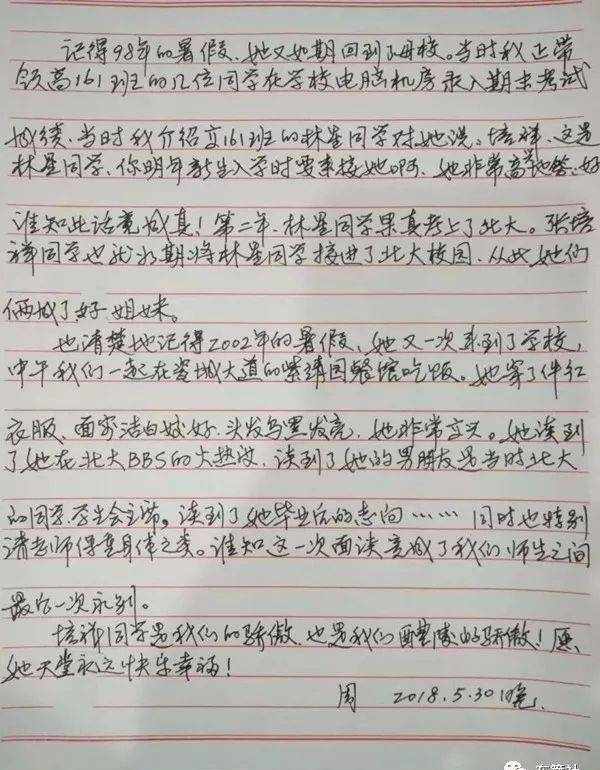 记得98年的暑假，她又如期回到了母校。当时我正带
领高161班的几位同学在学校电脑机房录入期末考试
成绩，当时我介绍高161班的林星同学对她说，培祥，这是
林星同学，你明年新生入学时要来接她啊，她非常高兴地答：好
谁知此话竟成真！第二年，林星同学果真考上了北大。张培
祥同学也就如期将林星同学接进了北大校园，从此她们
俩成了好姐妹。
也清楚地记得2002年的暑假，她又一次来到了学校，
中午我们一起在瓷城大道的紫靖园餐馆吃饭。她穿了件红
衣服、面容洁白姣好，头发乌黑发亮，她非常高兴。她谈到
了她在北大BBS的火热波，谈到了她的男朋友是当时北大
的同学，学生会主席。谈到了她毕业后的志向……同时也特别
请老师保重身体之类。谁知这一次面谈竟成了我们师生之间
最后一次永别。
培祥同学是我们的骄傲，也是我们醴陵的骄傲！愿
她天堂永远快乐幸福！
周 2018.5.30晚